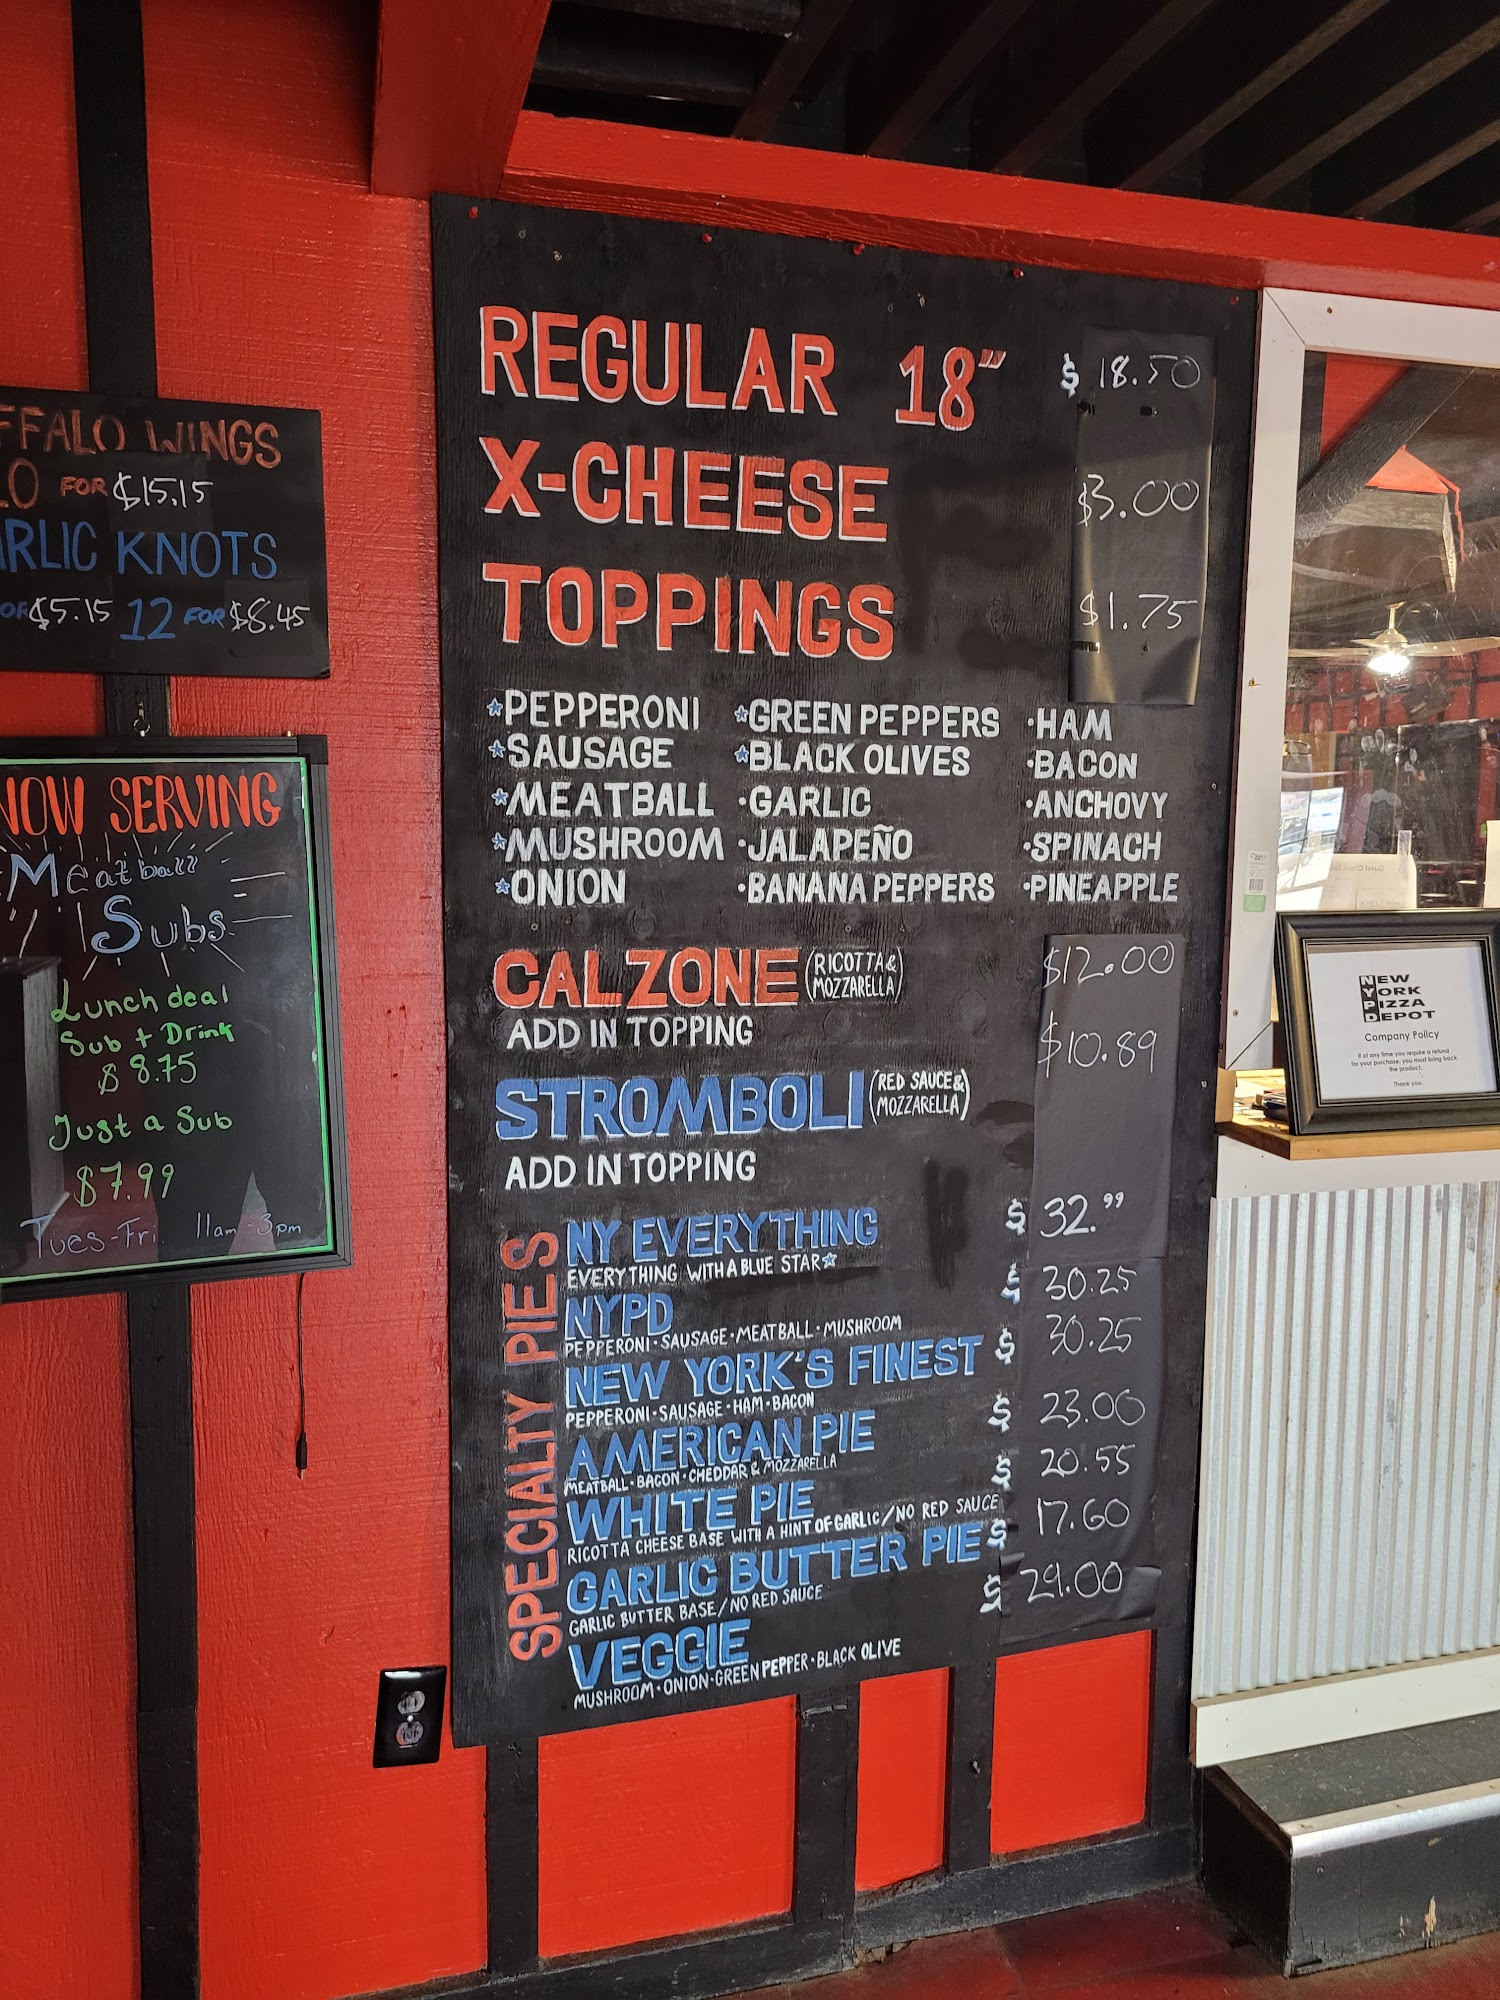 FFALO WINGS
FOR $15.15
RLIC KNOTS
$5.15 12 FOR $8.45
NOW SERVING
Meatball
Subs
Lunch deal
Sub + Drink
$ 8.75
Just a Sub
$7.99
Tues-Fri 11am-3pm
REGULAR 18" $ 18.50
X-CHEESE $3.00
TOPPINGS $1.75
*PEPPERONI *GREEN PEPPERS ·HAM
*SAUSAGE *BLACK OLIVES ·BACON
*MEATBALL ·GARLIC ·ANCHOVY
*MUSHROOM ·JALAPEÑO ·SPINACH
*ONION ·BANANA PEPPERS ·PINEAPPLE
CALZONE (RICOTTA & MOZZARELLA) $12.00
ADD IN TOPPING
STROMBOLI (RED SAUCE & MOZZARELLA) $10.89
ADD IN TOPPING
SPECIALTY PIES
NY EVERYTHING $ 32.99
EVERYTHING WITH A BLUE STAR*
NYPD $ 30.25
PEPPERONI·SAUSAGE·MEATBALL·MUSHROOM
NEW YORK'S FINEST $ 30.25
PEPPERONI·SAUSAGE·HAM·BACON
AMERICAN PIE $ 23.00
MEATBALL·BACON·CHEDDAR & MOZZARELLA
WHITE PIE $ 20.55
RICOTTA CHEESE BASE WITH A HINT OF GARLIC/NO RED SAUCE
GARLIC BUTTER PIE $ 17.60
GARLIC BUTTER BASE/NO RED SAUCE
VEGGIE $ 29.00
MUSHROOM·ONION·GREEN PEPPER·BLACK OLIVE
NEW
YORK
PIZZA
DEPOT
Company Policy
If at any time you require a refund
for your purchase, you must bring back
the product.
Thank you.